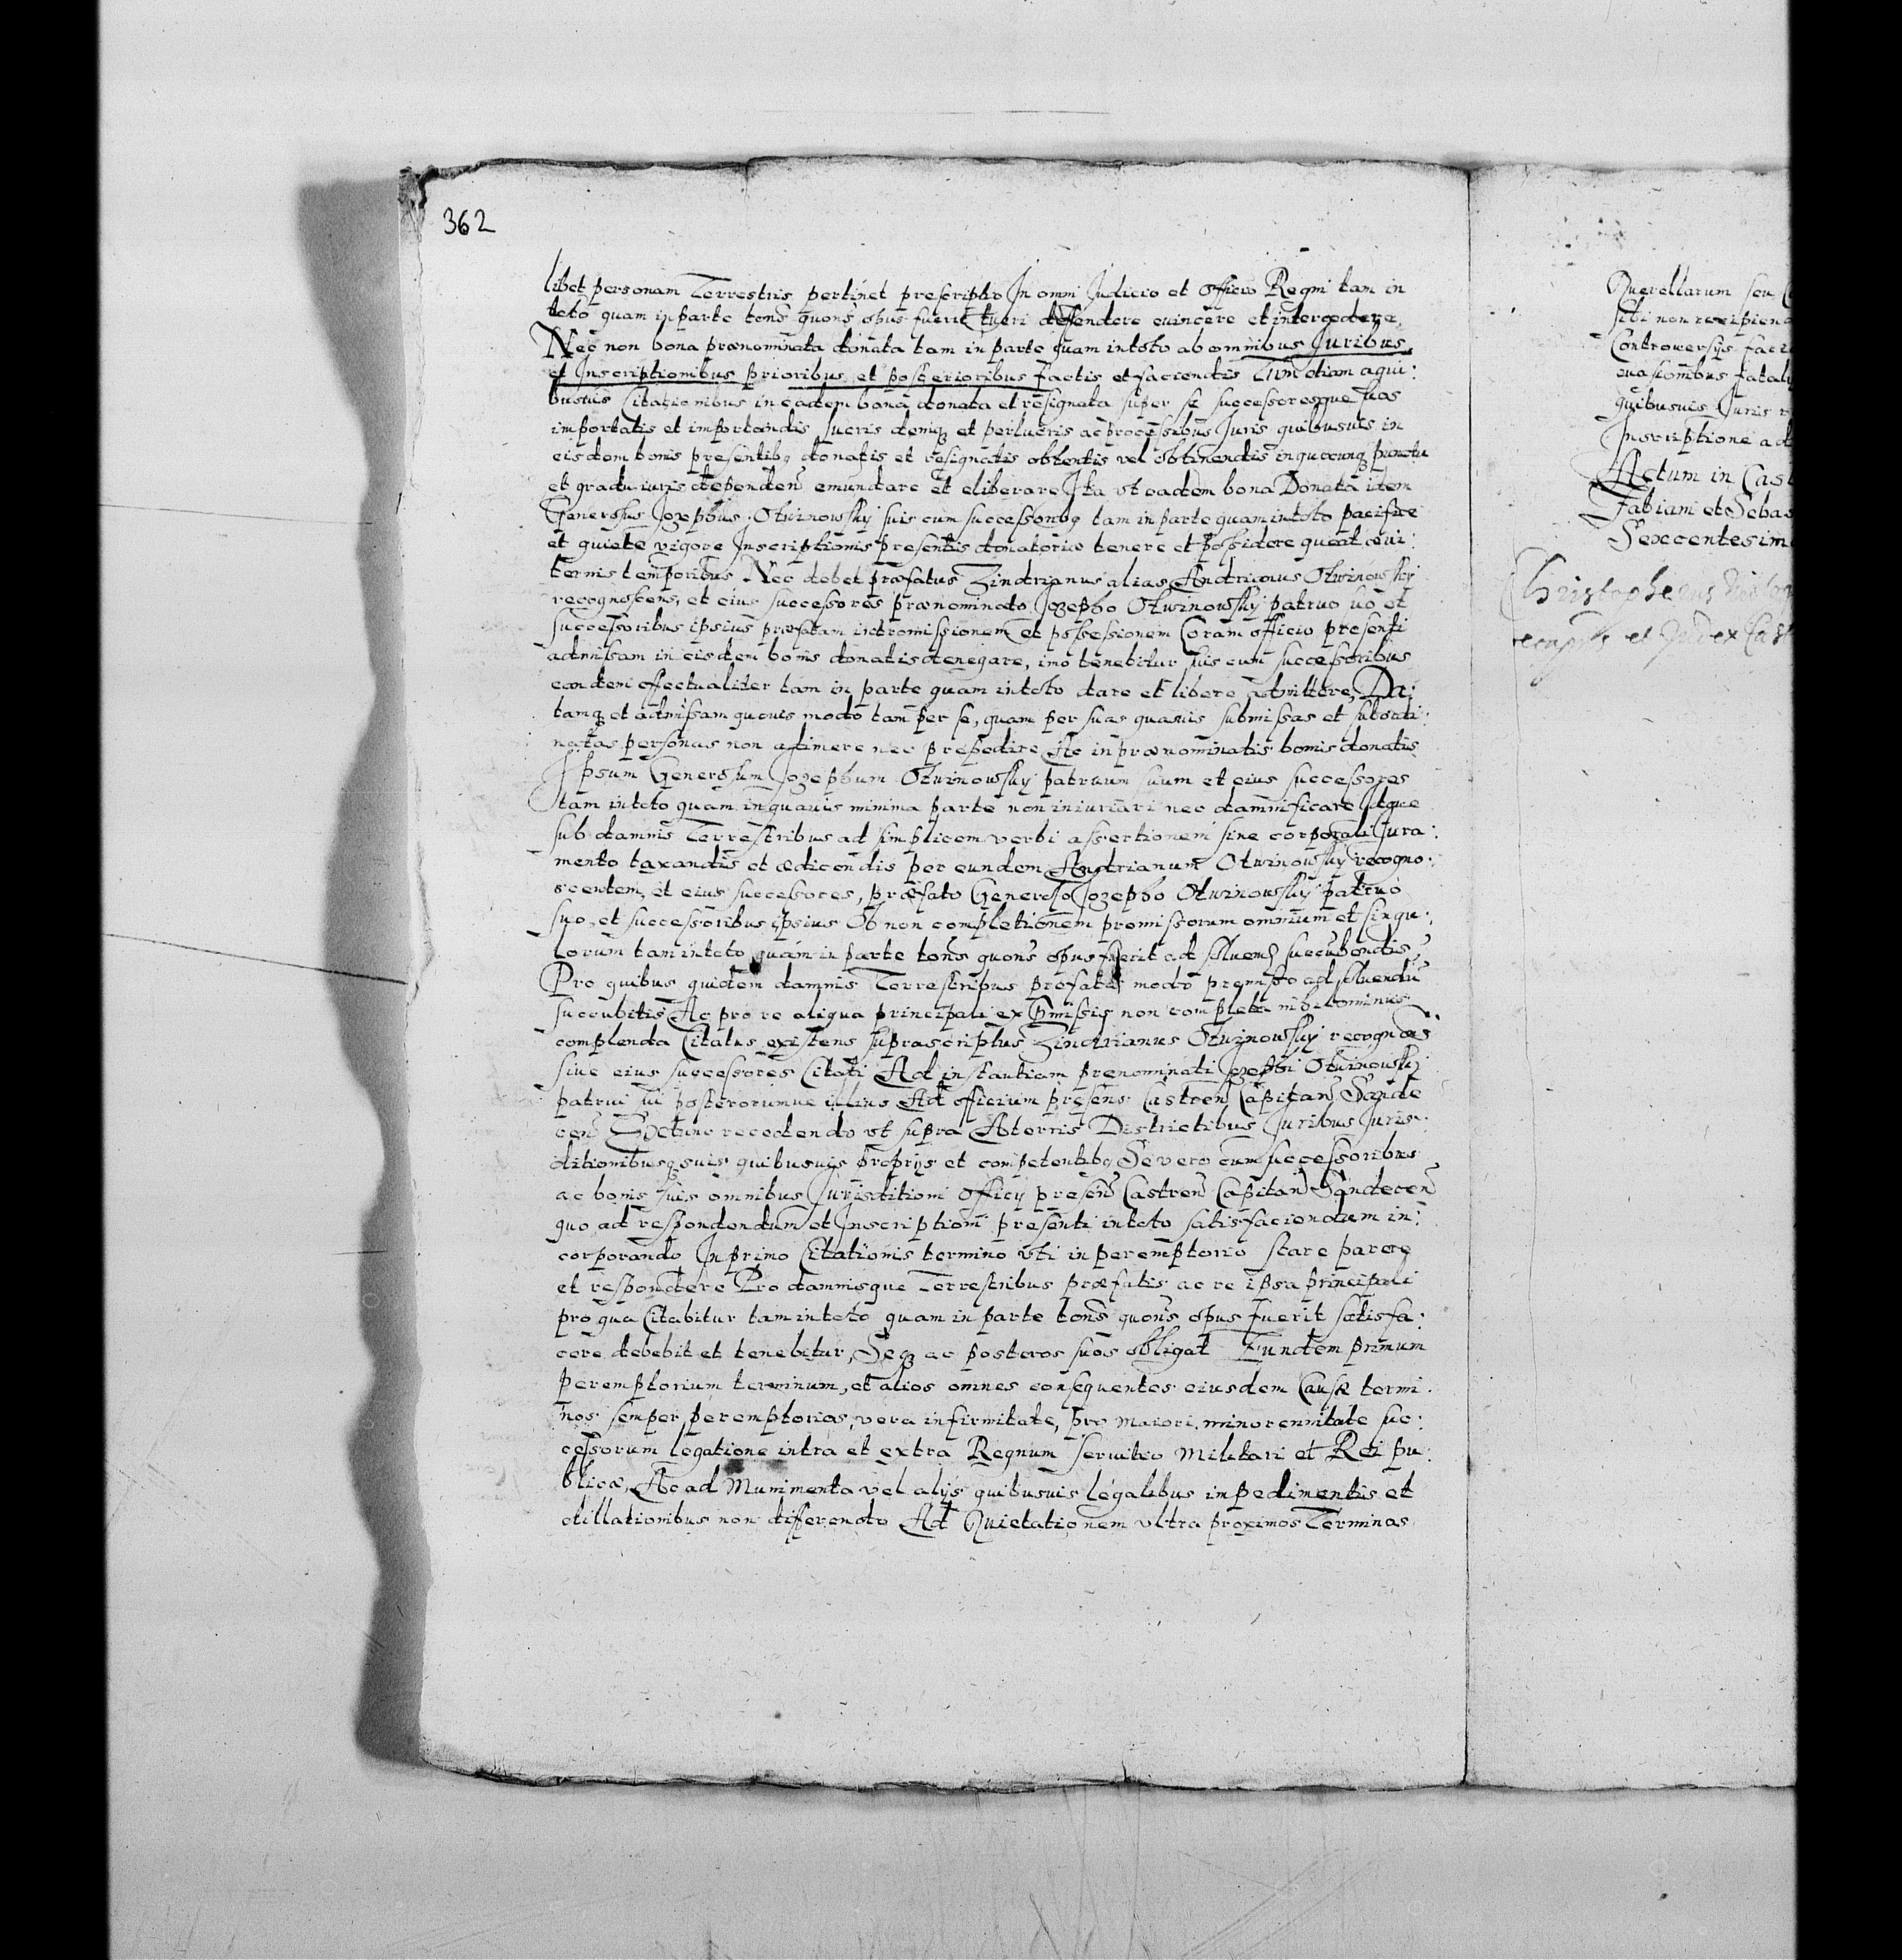 362
libet personam Terrestris pertinet prescriptio In omni Judicio et officio Regni tam in
toto quam in parte tons quons opus fuerit tueri deffendere euincere et intercedere,
Nec non bona prænominata donata tam in parte quam in toto ab omnibus Juribus,
et Inscriptionibus prioribus et posterioribus factis et faciendis Tum etiam a qui:
busuis Citationibus in eadem bona donata et resignata super se successoresque suos
importatis et importandis lucris deniq et perlucris ac processibus Juris quibusuis in
eisdem bonis presentibq donatis et resignatis obtentis vel obtinendis in quocunq punctu
et gradu iuris dependen emundare et eliberare Ita vt eadem bona Donata idem
Generosus Jozephus Otwinowsky suis cum successoribq tam in parte quam in toto pacifice
et quiete vigore Inscriptionis presentis donatoriæ tenere et possidere queat æui:
ternis temporibus Nec debet præfatus Zindrzianus alias Andrianus Otwinowsky
recognoscens, et eius successores prænominato Jozepho Otwinowsky patruo suo et
successoribus ipsius præfatam intromissionem et possessionem Coram officio presenti
admissam in eisdem bonis donatis denegare, imo tenebitur suis cum successoribus
eandem effectualiter tam in parte quam in toto dare et libere admittere, Da:
tamq et admissam quouis modo tam per se, quam per suas quasuis submissas et subordi:
natas personas non adimere nec prepedire Ac in prænominatis bonis donatis
Ipsum Generosum Jozephum Otwinowsky patruum suum et eius successores
tam in toto quam in quauis minima parte non iniuriari nec damnificare Idque
sub damnis Terrestribus ad simplicem verbi assertionem sine corporali Jura:
mento taxandis et ædicendis per eundem Andrianum Otwinowsky recogno:
scentem, et eius successores, præfato Generoso Jozepho Otwinowsky patruo
suo, et successoribus ipsius Ob non completionem promissorum omnium et singu:
lorum tam in toto quam in parte tons quons opus fuerit ad soluend succubendis
Pro quibus quidem damnis Terrestribus prefatis modo premisso ad soluendu
succubitis Ac pro re aliqua principali ex pmissis non completa nihilominus
complenda Citatus existens suprascriptus Zindrianus Otwinowsky recognoscens
siue eius successores Citati Ad instantiam prenominati Jozephi Otwinowsky
patrui sui posterorumue illius Ad officium presens Castren Capitan Sande
cen recedendo vt supra Aterris Districtibus Juribus Juris:
ditionibusq suis quibusuis proprijs et competentibq Se vero cum successoribus
ac bonis suis omnibus Jurisditioni officy presen Castren Capitan Sandecen
quo ad respondendum et Inscriptioni presenti in toto satisfaciendum in:
corporando In primo Citationis termino vti in peremptorio stare parere
et respondere Pro damnisque Terrestribus præfatis ac re ipsa principali
pro qua Citabitur tam in toto quam in parte tons quons opus fuerit satisfa:
cere debebit et tenebitur, Seq ac posteros suos obligat Eundem primum
peremptorium terminum, et alios omnes consequentes eiusdem Causæ termi:
nos semper peremptorios, vera infirmitate, pro maiori, minorennitate suc:
cessorum legatione intra et extra Regnum seruitio Militari et Rei pu:
blicæ, Ac ad Munimenta vel alijs quibusuis legalibus impedimentis et
dillationibus non differendo Ad Quietationem vltra proximos Terminos
Querellarum seu
sibi non recipien
Controwersijs faci
euasionibus fatali
quibusuis Juris
Inscriptione ad
Actum in Cast
Fabiani et Sebas
Sexcentesimo
Christopherus
et Judex Cast